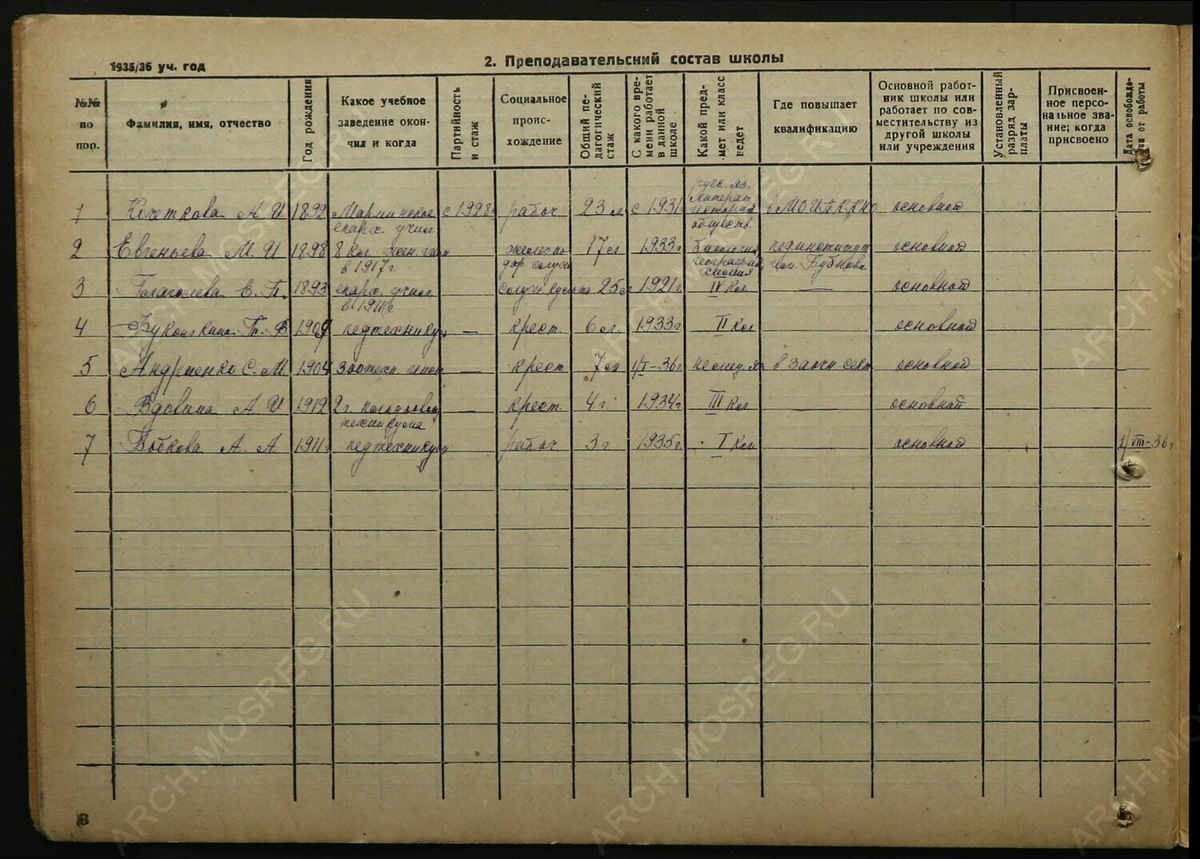 1935/36 уч. год
2. Преподавательский состав школы
№№ по пор.
Фамилия, имя, отчество
Год рождения
Какое учебное заведение окончил и когда
Партийность и стаж
Социальное происхождение
Общий педагогический стаж
С какого времени работает в данной школе
Какой предмет или класс ведет
Где повышает квалификацию
Основной работник школы или работает по совместительству из другой школы или учреждения
Установленный разряд зарплаты
Присвоенное персональное звание; когда присвоено
Дата освобождения от работы
1 Кочеткова А И 1892 Мариинское епарх. учил. с 1928г рабоч 23 л с 1931г русс. яз. литерат история обществ. основной
2 Евгеньева М. И 1898 8 кл. жен. гим в 1917г. 17 л 1933г география, химия пединститут им. Бубнова основной
3 Благолева Е. П. 1893 епарх. учил в 1911г. 25 л 1921г IV кл — основной
4 1909 педтехникум — крест. 6 л 1933г II кл основной
5 Андриенко С. М 1904 — крест 7 л 1/I-36г немец. яз в заочн сект основной
6 Вдовина А И 1912 2 г. техникума — крест. 4 г. 1934г III кл — основной
7 Бобкова А. А 1911г педтехникум рабоч 3 г 1935г I кл основной 1/VIII-36г
6
ARCH.MOSREG.RU